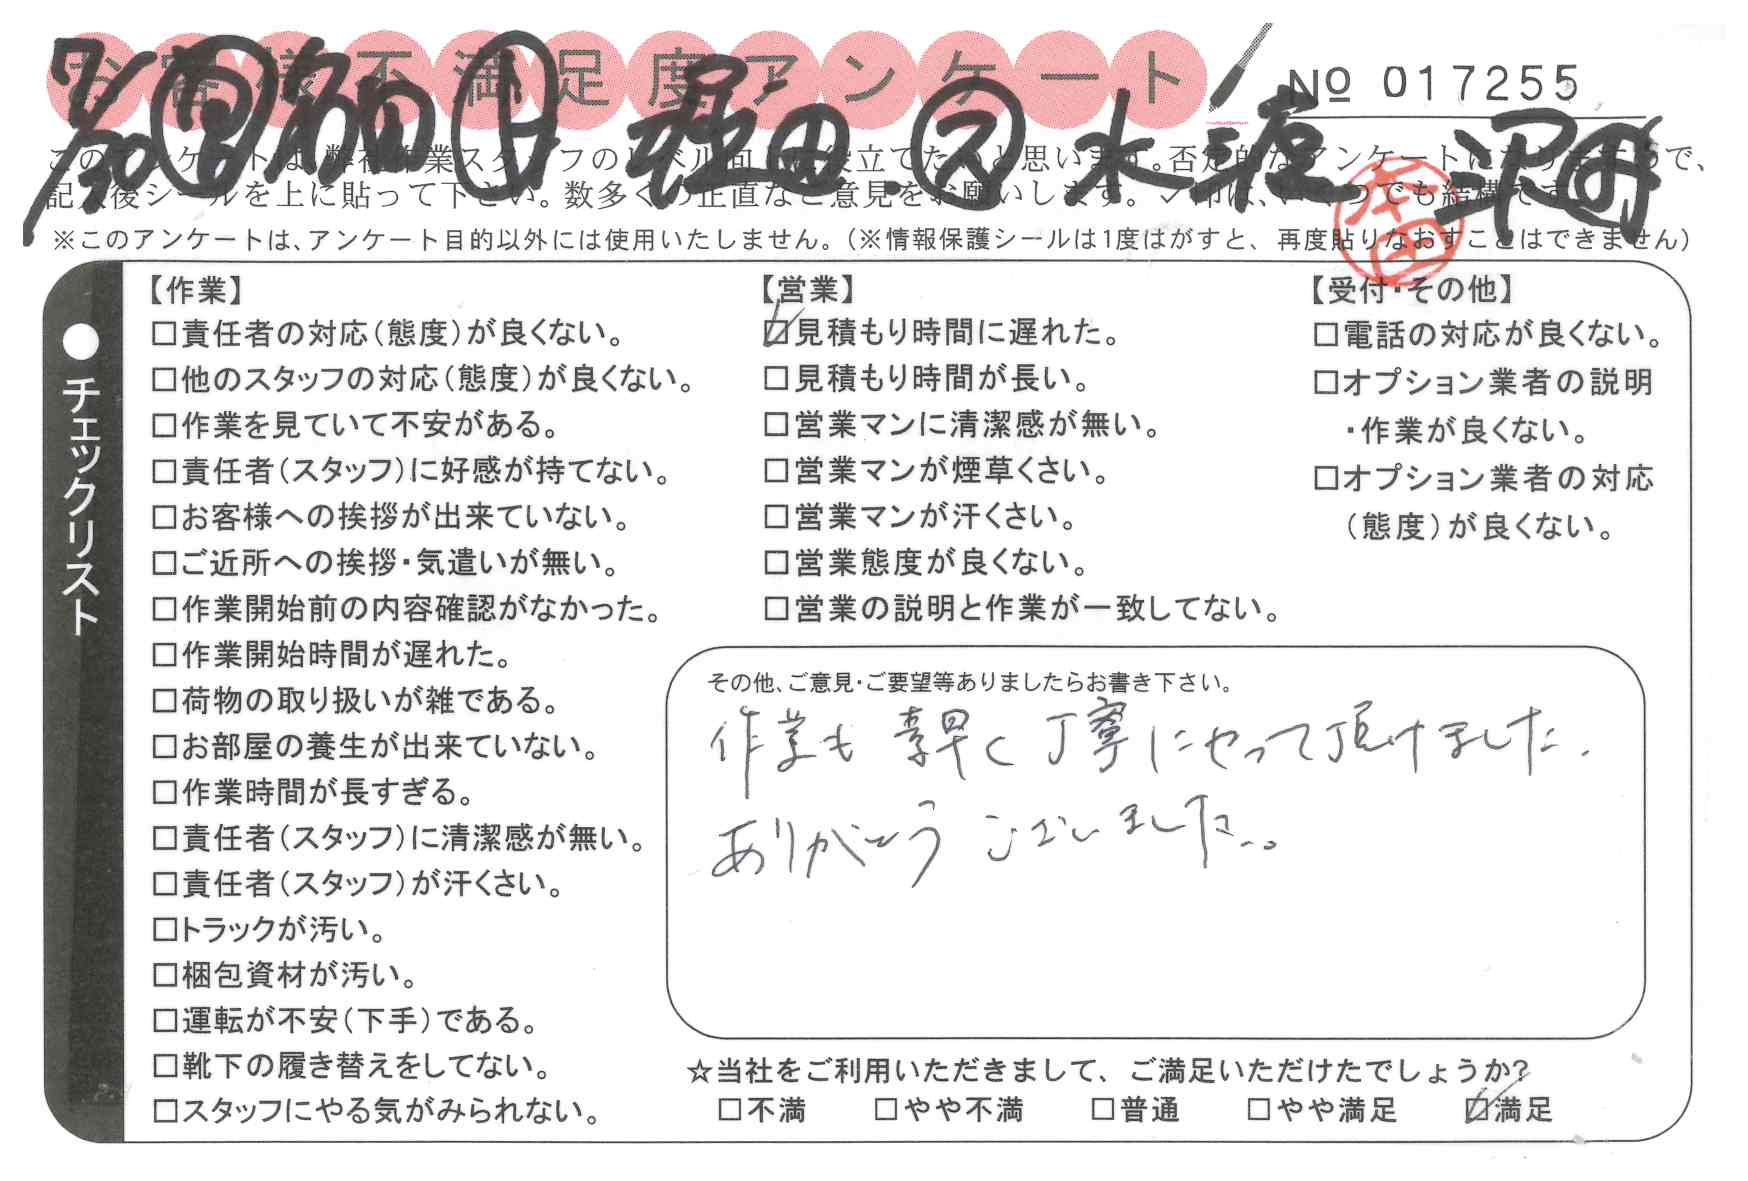 お客様不満足度アンケート
No 017255
7/30 堀田 水 沢町
このアンケートは、弊社作業スタッフのレベル向上に役立てたいと思います。否定的なアンケートになりますので、
記入後シールを上に貼って下さい。数多くの正直なご意見をお願いします。✓印は、いくつでも結構です。
本田
※このアンケートは、アンケート目的以外には使用いたしません。(※情報保護シールは1度はがすと、再度貼りなおすことはできません)
●チェックリスト
【作業】
□責任者の対応(態度)が良くない。
□他のスタッフの対応(態度)が良くない。
□作業を見ていて不安がある。
□責任者(スタッフ)に好感が持てない。
□お客様への挨拶が出来ていない。
□ご近所への挨拶・気遣いが無い。
□作業開始前の内容確認がなかった。
□作業開始時間が遅れた。
□荷物の取り扱いが雑である。
□お部屋の養生が出来ていない。
□作業時間が長すぎる。
□責任者(スタッフ)に清潔感が無い。
□責任者(スタッフ)が汗くさい。
□トラックが汚い。
□梱包資材が汚い。
□運転が不安(下手)である。
□靴下の履き替えをしてない。
□スタッフにやる気がみられない。
【営業】
☑見積もり時間に遅れた。
□見積もり時間が長い。
□営業マンに清潔感が無い。
□営業マンが煙草くさい。
□営業マンが汗くさい。
□営業態度が良くない。
□営業の説明と作業が一致してない。
【受付・その他】
□電話の対応が良くない。
□オプション業者の説明
・作業が良くない。
□オプション業者の対応
(態度)が良くない。
その他、ご意見・ご要望等ありましたらお書き下さい。
作業も素早く丁寧にやって頂けました.
ありがとうございました。
☆当社をご利用いただきまして、ご満足いただけたでしょうか?
□不満 □やや不満 □普通 □やや満足 ☑満足